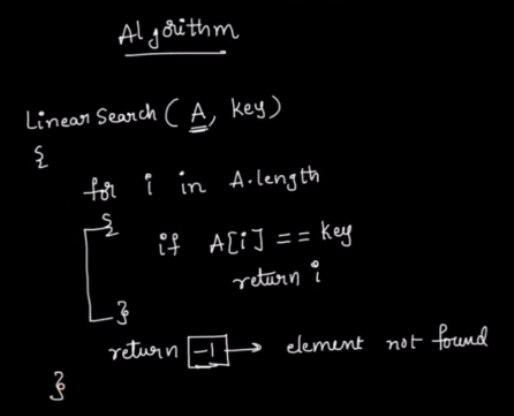 Algorithm
Linear Search ( A, key )
{
for i in A.length
{
if A[i] == key
return i
}
return -1 → element not found
}